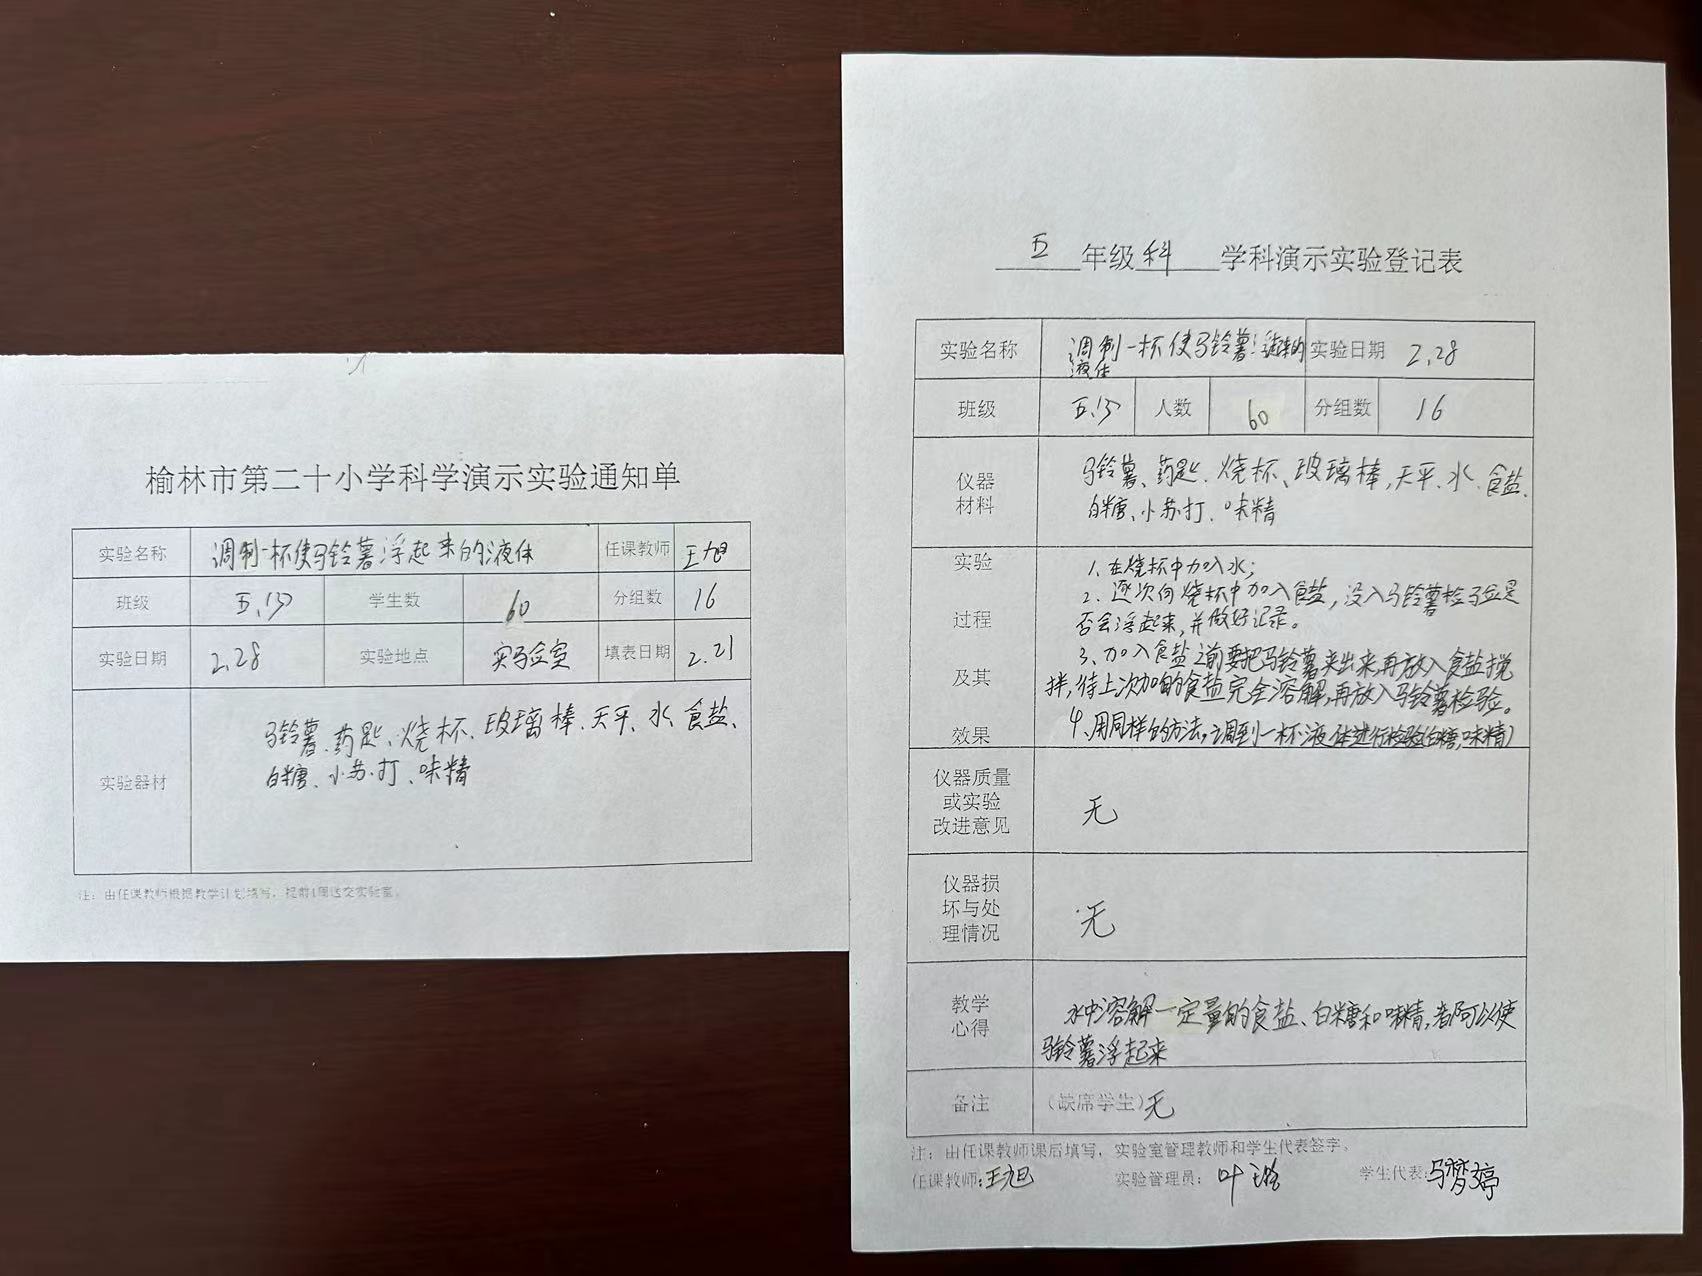 榆林市第二十小学科学演示实验通知单
实验名称 调制一杯使马铃薯浮起来的液体 任课教师 王旭
班级 五.13 学生数 60 分组数 16
实验日期 2.28 实验地点 实验室 填表日期 2.21
实验器材
马铃薯、药匙、烧杯、玻璃棒、天平、水、食盐、
白糖、小苏打、味精
注：由任课教师根据教学计划填写，提前1周送交实验室。
五 年级 科 学科演示实验登记表
实验名称 调制一杯使马铃薯浮起来的
液体
实验日期 2.28
班级 五.13 人数 60 分组数 16
仪器
材料
马铃薯、药匙、烧杯、玻璃棒、天平、水、食盐、
白糖、小苏打、味精
实验
过程
及其
效果
1、在烧杯中加入水；
2、逐次向烧杯中加入食盐，没入马铃薯检验是
否会浮起来，并做好记录。
3、加入食盐之前要把马铃薯夹出来，再放入食盐搅
拌，待上次加的食盐完全溶解，再放入马铃薯检验。
4、用同样的方法，调到一杯液体进行检验(白糖,味精)
仪器质量
或实验
改进意见
无
仪器损
坏与处
理情况
无
教学
心得
水中溶解一定量的食盐、白糖和味精，都可以使
马铃薯浮起来
备注 （缺席学生）无
注：由任课教师课后填写，实验室管理教师和学生代表签字。
任课教师：王旭 实验管理员：叶 学生代表：马梦婷